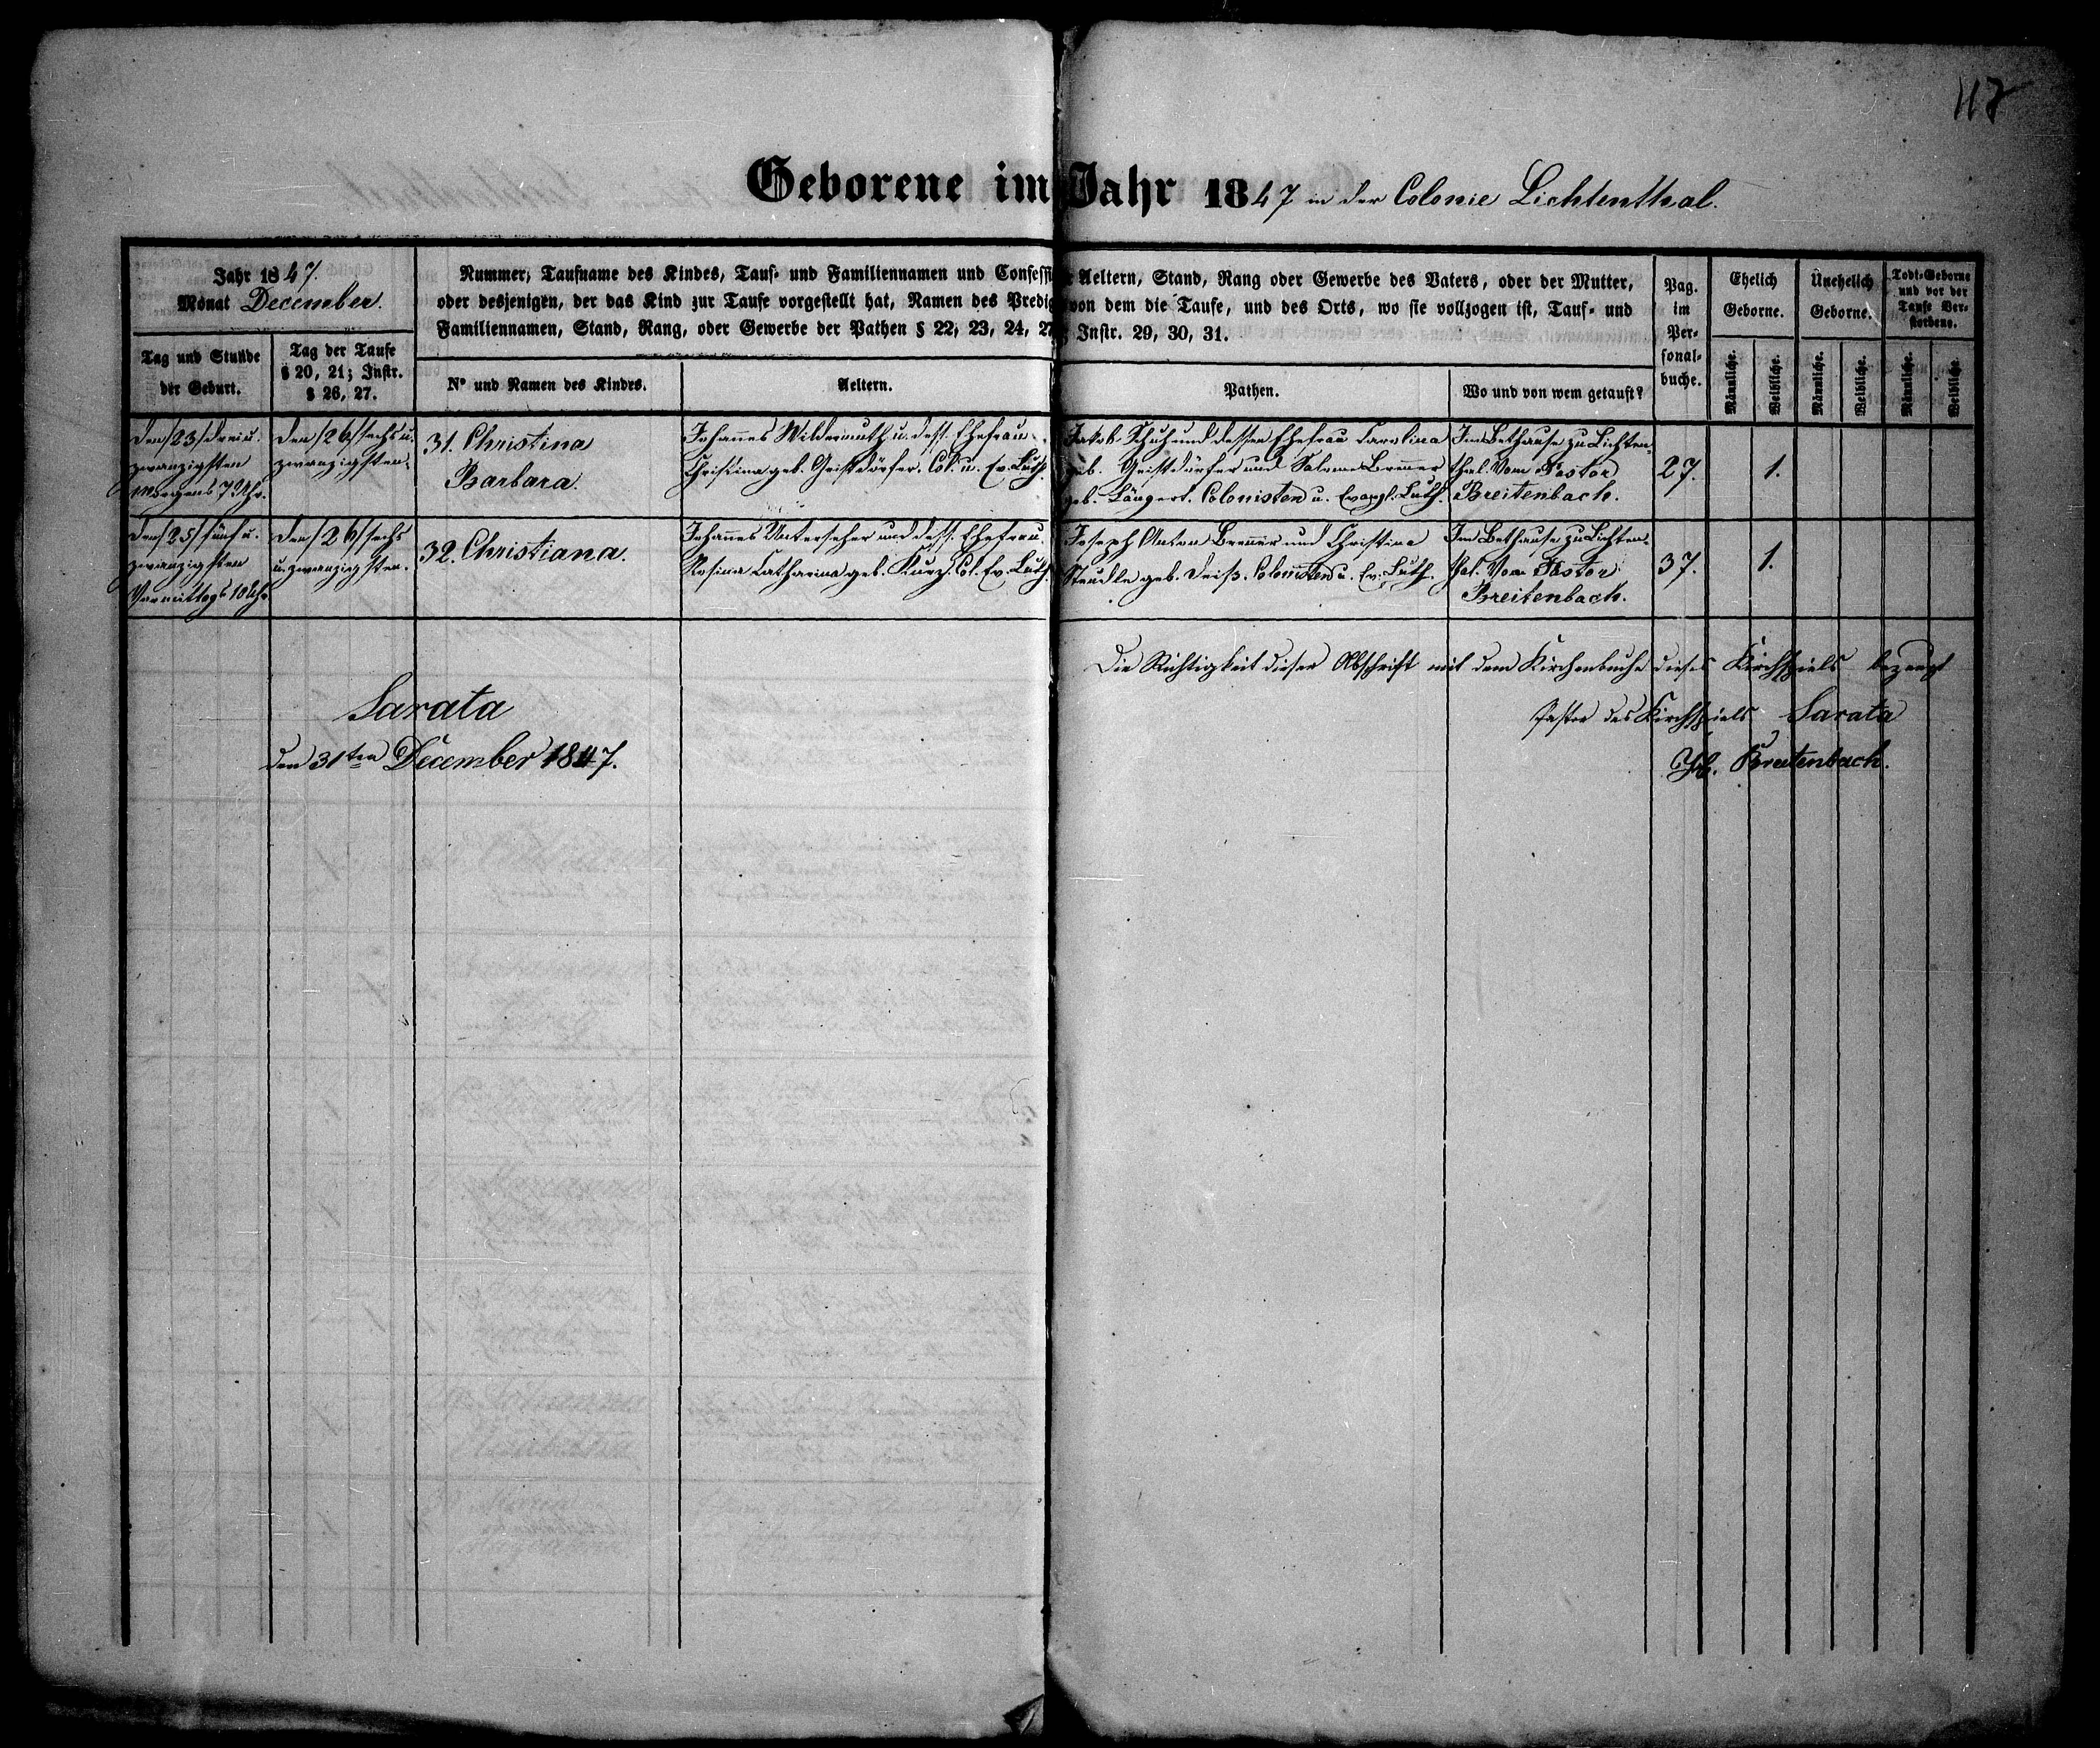 117
Geborene im Jahr 1847 in der Colonie Lichtenthal.
Jahr 1847.
Monat December.
Tag und Stunde
der Geburt.
Tag der Taufe
§ 20, 21; Instr.
§ 26, 27.
Nummer, Taufname des Kindes, Tauf- und Familiennamen und Confessi r Aeltern, Stand, Rang oder Gewerbe des Vaters, oder der Mutter,
oder desjenigen, der das Kind zur Taufe vorgestellt hat, Namen des Predig von dem die Taufe, und des Orts, wo sie vollzogen ist, Tauf- und
Familiennamen, Stand, Rang, oder Gewerbe der Pathen § 22, 23, 24, 27; Instr. 29, 30, 31.
No und Namen des Kindes.
Aeltern.
Pathen.
Wo und von wem getauft?
Pag.
im
Per-
sonal-
buche.
Ehelich
Geborne.
Unehelich
Geborne.
Todt-Geborne
und vor der
Taufe Ver-
storbene.
Männliche.
Weibliche.
Männliche.
Weibliche.
Männliche.
Weibliche.
Den /23/ drei u.
zwanzigsten
Morgens 7 Uhr.
Den /26/ sechs u.
zwanzigsten.
31. Christina
Barbara.
Johannes Wildermuth u. dess. Ehefrau
Christina geb. Geistdörfer. Col. u. Ev. Luth.
Jakob Schuh und dessen Ehefrau Carolina
geb. Geistdörfer und Salome Brenner
geb. Colonisten u. Evangl. Luth.
Im Bethause zu Lichten-
thal. Vom Pastor
Breitenbach.
27.
1.
Den /25/ fünf u.
zwanzigsten
Vormittags 10 Uhr
Den /26/ sechs
u. zwanzigsten.
32. Christiana.
Johannes Unterseher und dess. Ehefrau.
Rosina Catharina geb. Kurz. Col. Ev. Luth.
Joseph Anton Brenner und Christina
Steudle geb. Deiß. Colonisten u. Ev. Luth.
Im Bethause zu Lichten-
thal. Vom Pastor
Breitenbach.
37.
1.
Die Richtigkeit dieser Abschrift mit dem Kirchenbuche dieses Kirchspiels bezeugt
Pastor des Kirchspiels Sarata
Breitenbach.
Sarata
den 31ten December 1847.